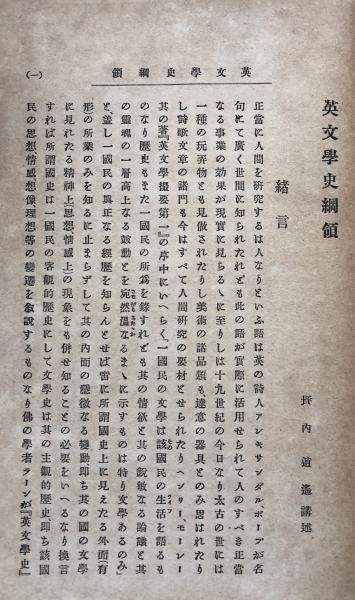 英文學史綱領
(一)
英文學史綱領
坪內逍遙講述
緒言
正當に人間を硏究するは人なりといふ語は英の詩人アレキサンダル、ポープが名
句にて廣く世間に知られたれども此の語が實際に活用せられて人のすべき正當
なる事業の効果が現實に見らるゝに至りしは十九世紀の今日なり太古の世には
一種の玩弄物とも見做されたりし美術の諸品類も達意の器具とのみ思はれたり
し詩歌文章の諸門も今はすべて人間硏究の要材とせられたりヘンリー、モーレー
其の著『英文學撮要第一』の序中にいへらく、一國民の文學は該國民の生活を語るも
のなり歷史もまた一國民の所爲を錄すれども其の情欲と其の銳敏なる論議と其
の靈魂の一層高上なる鼓動とを宛然溫なるまゝに示すものは特り文學あるのみ」
と蓋し一國民の眞正なる經歷を知らんとせば啻に所謂國史上に見えたる外面(有
形)の所業のみを知るに止まらずして其の內面の隱微なる變動即ち其の國の文學
に見れたる精神上、思想、情感上の現象をも併せ知ることの必要をいへるなり換言
すれば所謂國史は一國民の客觀的歷史にして文學史は其の主觀的歷史即ち該國
民の思想情感想像、理想等の變遷を敘說するものなり佛の學者テーンが『英文學史』